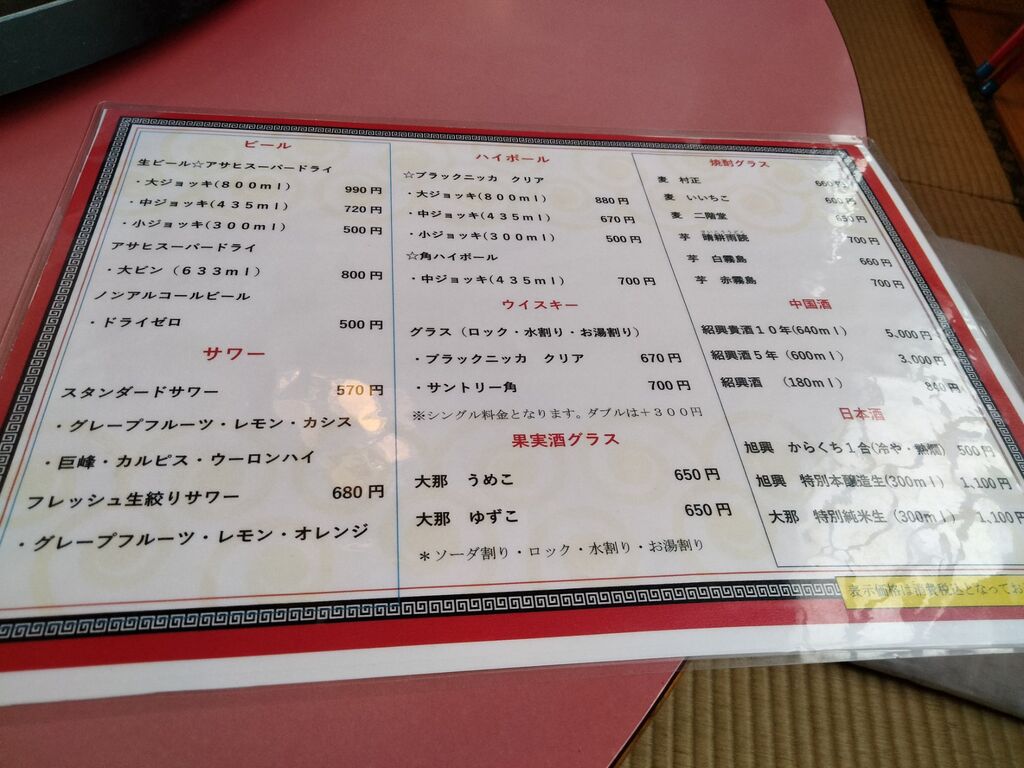 ビール
生ビール☆アサヒスーパードライ
・大ジョッキ(８００ｍｌ) 990円
・中ジョッキ(４３５ｍｌ) 720円
・小ジョッキ(３００ｍｌ) 500円
アサヒスーパードライ
・大ビン（６３３ｍｌ） 800円
ノンアルコールビール
・ドライゼロ 500円
サワー
スタンダードサワー 570円
・グレープフルーツ・レモン・カシス
・巨峰・カルピス・ウーロンハイ
フレッシュ生絞りサワー 680円
・グレープフルーツ・レモン・オレンジ
ハイボール
☆ブラックニッカ　クリア
・大ジョッキ(８００ｍｌ) 880円
・中ジョッキ(４３５ｍｌ) 670円
・小ジョッキ(３００ｍｌ) 500円
☆角ハイボール
・中ジョッキ(４３５ｍｌ) 700円
ウイスキー
グラス（ロック・水割り・お湯割り）
・ブラックニッカ　クリア 670円
・サントリー角 700円
※シングル料金となります。ダブルは＋３００円
果実酒グラス
大那　うめこ 650円
大那　ゆずこ 650円
＊ソーダ割り・ロック・水割り・お湯割り
焼酎グラス
麦　村正 660円
麦　いいちこ 660円
麦　二階堂
芋　晴耕雨読 700円
芋　白霧島 660円
芋　赤霧島 700円
中国酒
紹興貴酒１０年(640ｍｌ) 5,000円
紹興酒５年（600ｍｌ） 3,000円
紹興酒　（180ｍｌ） 840円
日本酒
旭興　からくち１合(冷や・熱燗) 500円
旭興　特別本醸造生(300ｍｌ) 1,100円
大那　特別純米生（300ｍｌ） 1,100円
表示価格は消費税込となってお